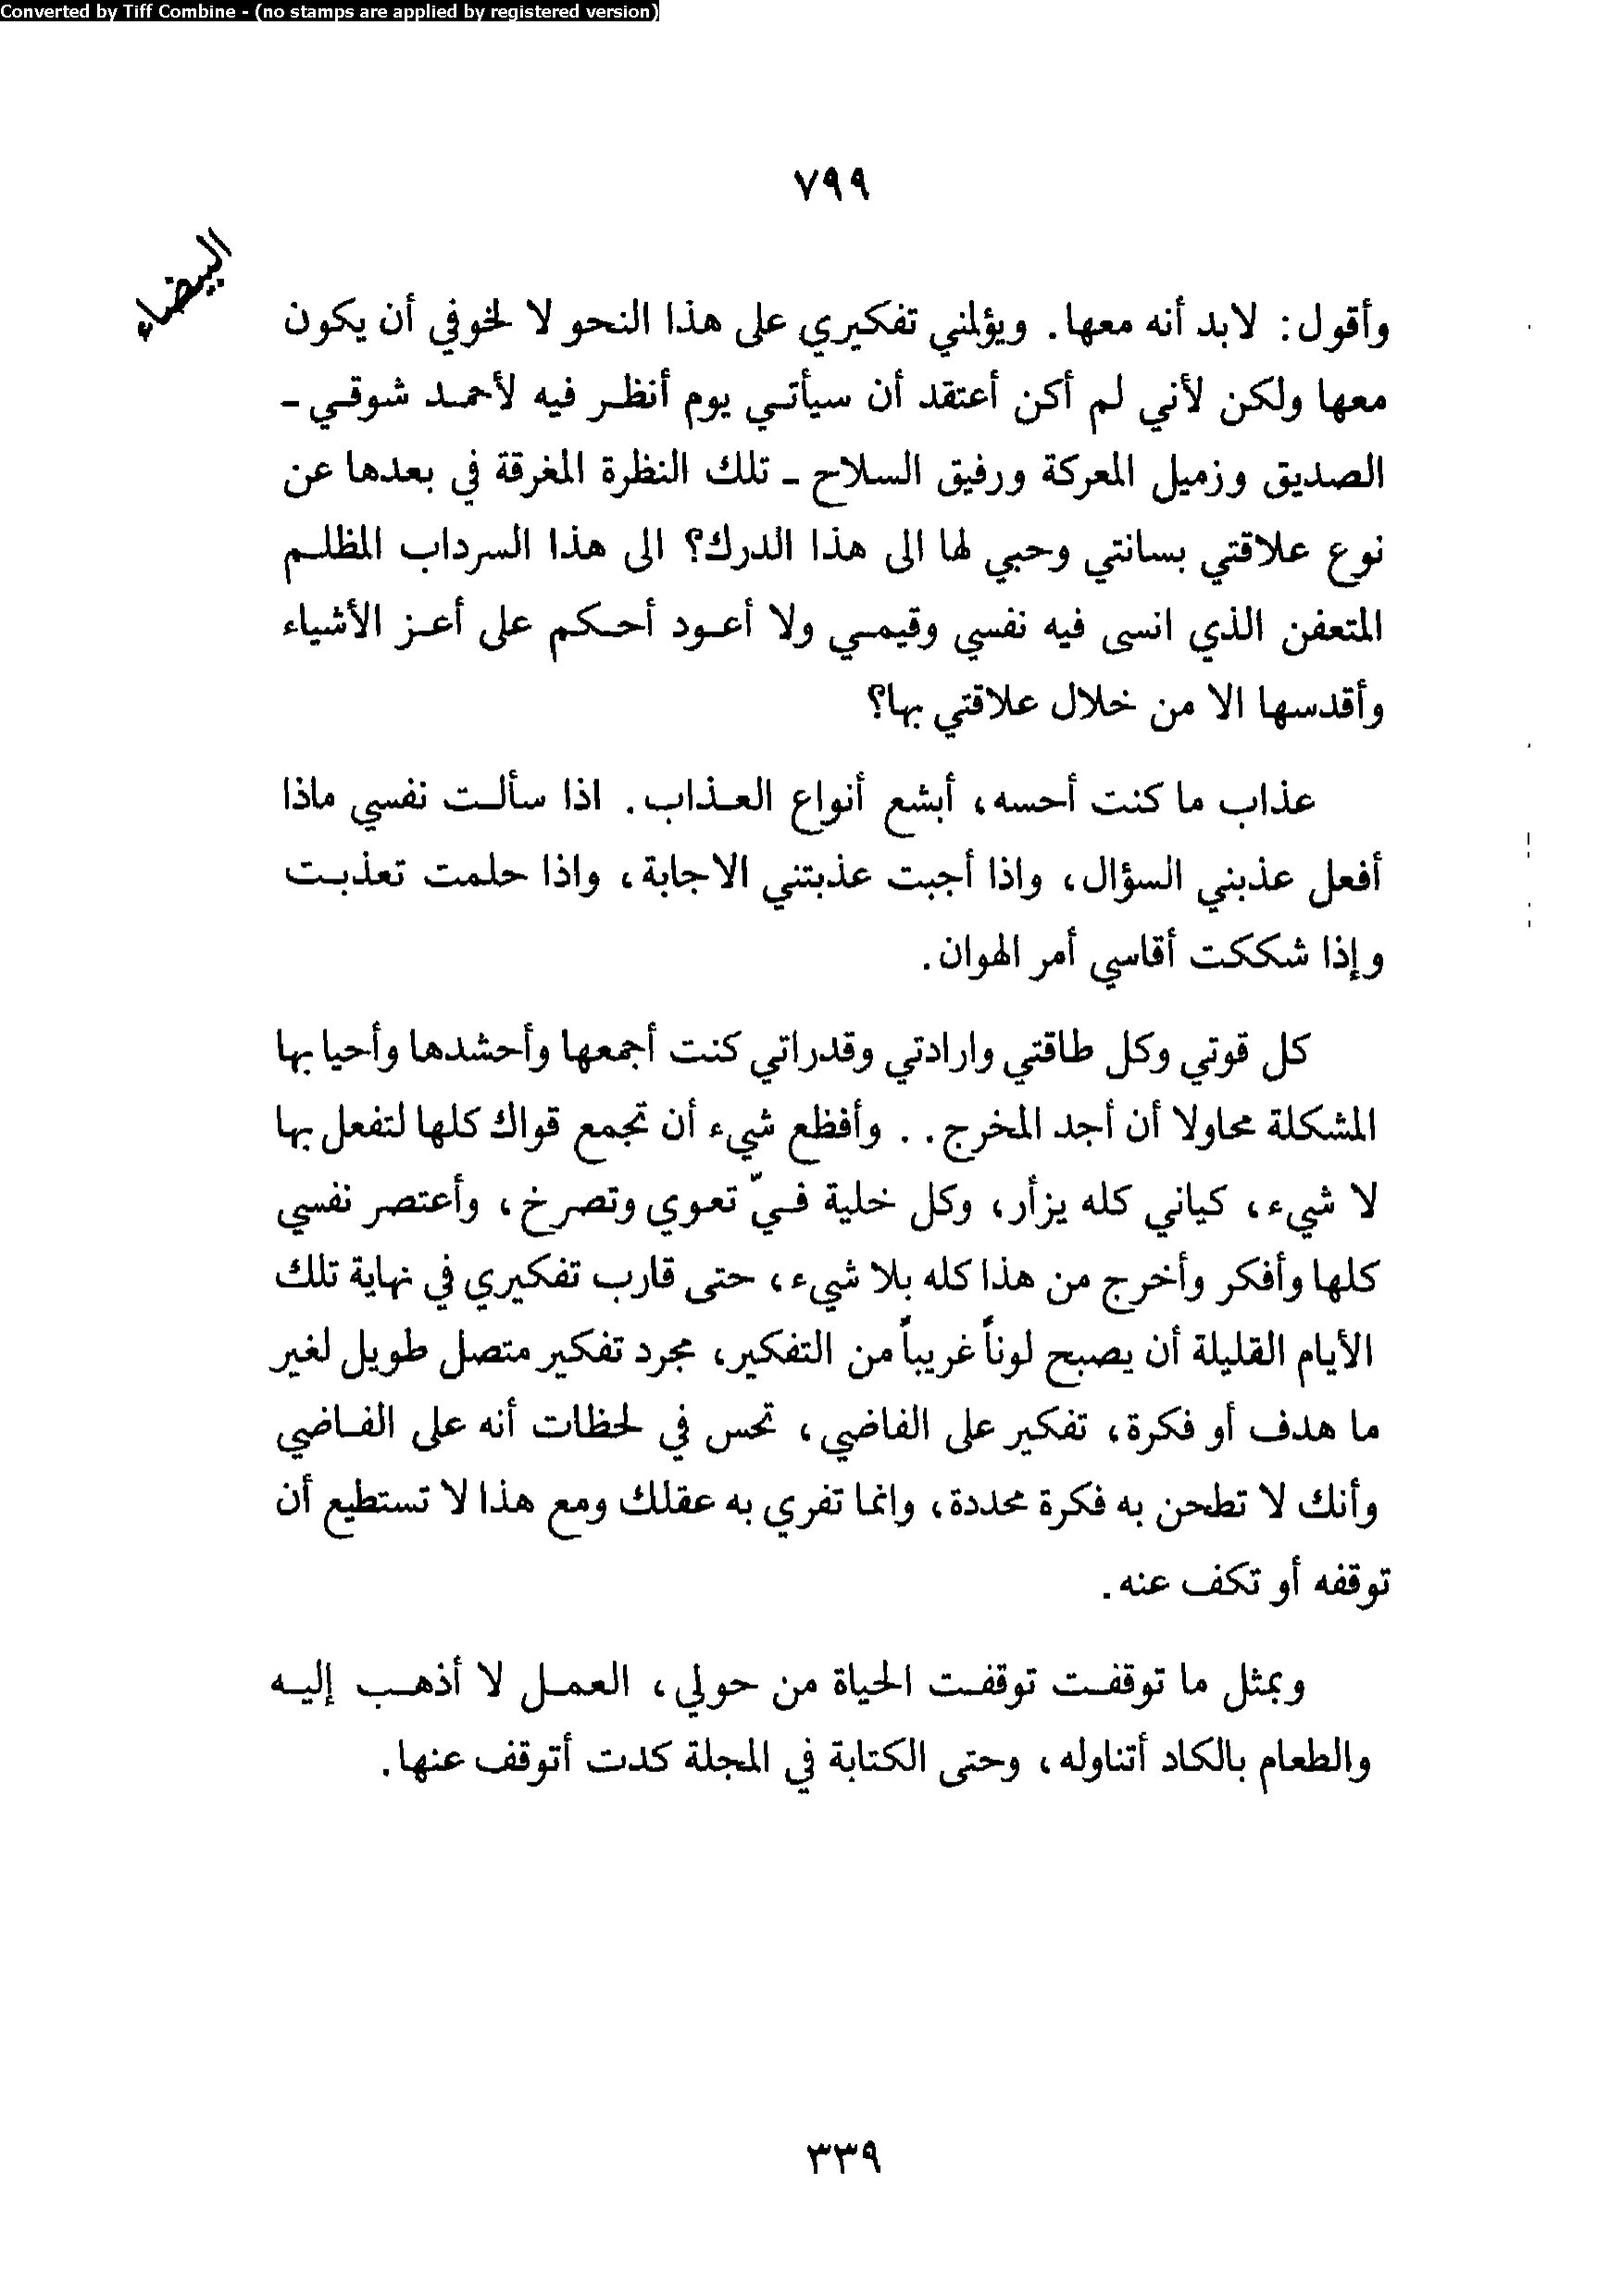 Converted by Tiff Combine - (no stamps are applied by registered version)
٧٩٩
البيضاء
وأقول: لابد أنه معها. ويؤلمني تفكيري على هذا النحو لا لخوفي أن يكون
معها ولكن لأني لم أكن أعتقد أن سيأتي يوم أنظر فيه لأحمد شوقي -
الصديق وزميل المعركة ورفيق السلاح - تلك النظرة المغرقة في بعدها عن
نوع علاقتي بسانتي وحبي لها الى هذا الدرك؟ الى هذا السرداب المظلم
المتعفن الذي انسى فيه نفسي وقيمي ولا أعود أحكم على أعز الأشياء
وأقدسها الا من خلال علاقتي بها؟
عذاب ما كنت أحسه، أبشع أنواع العذاب. اذا سألت نفسي ماذا
أفعل عذبني السؤال، واذا أجبت عذبتني الاجابة، واذا حلمت تعذبت
وإذا شككت أقاسي أمر الهوان.
كل قوتي وكل طاقتي وارادتي وقدراتي كنت أجمعها وأحشدها وأحيا بها
المشكلة محاولا أن أجد المخرج.. وأفظع شيء أن تجمع قواك كلها لتفعل بها
لا شيء، كياني كله يزأر، وكل خلية فيّ تعوي وتصرخ، وأعتصر نفسي
كلها وأفكر وأخرج من هذا كله بلا شيء، حتى قارب تفكيري في نهاية تلك
الأيام القليلة أن يصبح لوناً غريباً من التفكير، مجرد تفكير متصل طويل لغير
ما هدف أو فكرة، تفكير على الفاضي، تحس في لحظات أنه على الفاضي
وأنك لا تطحن به فكرة محددة، وانما تفري به عقلك ومع هذا لا تستطيع أن
توقفه أو تكف عنه.
وبمثل ما توقفت توقفت الحياة من حولي، العمل لا أذهب إليه
والطعام بالكاد أتناوله، وحتى الكتابة في المجلة كدت أتوقف عنها.
٣٣٩